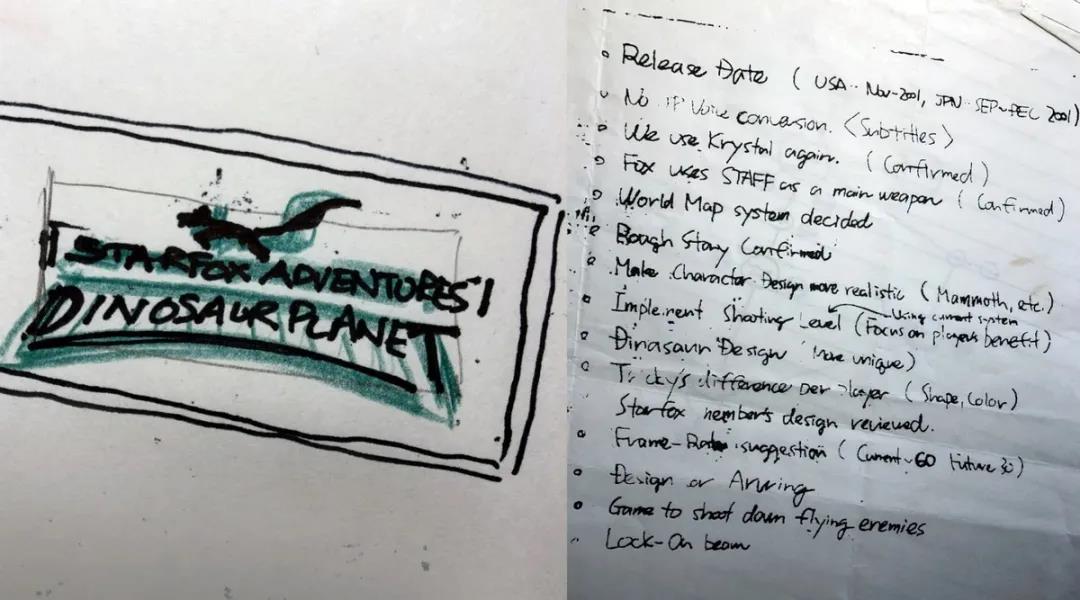 STARFOX ADVENTURES
DINOSAUR PLANET
Release Date (USA·· Nov-2001, JPN·· SEP~DEC 2001)
No Voice conversion. <Subtitles>
We use Krystal again. (Confirmed)
Fox uses STAFF as a main weapon (Confirmed)
World Map system decided
Rough Story Confirmed
Make Character Design more realistic (Mammoth, etc.)
Using current system
Implement Shooting Level (Focus on players benefit)
Dinasaur Design (More unique)
Tricky's difference per player (Shape, Color)
Starfox member's design reviewed.
Frame-Rate suggestion (Current~60 Future 30)
Design or Arwing
Game to shoot down flying enemies
Lock-On beam